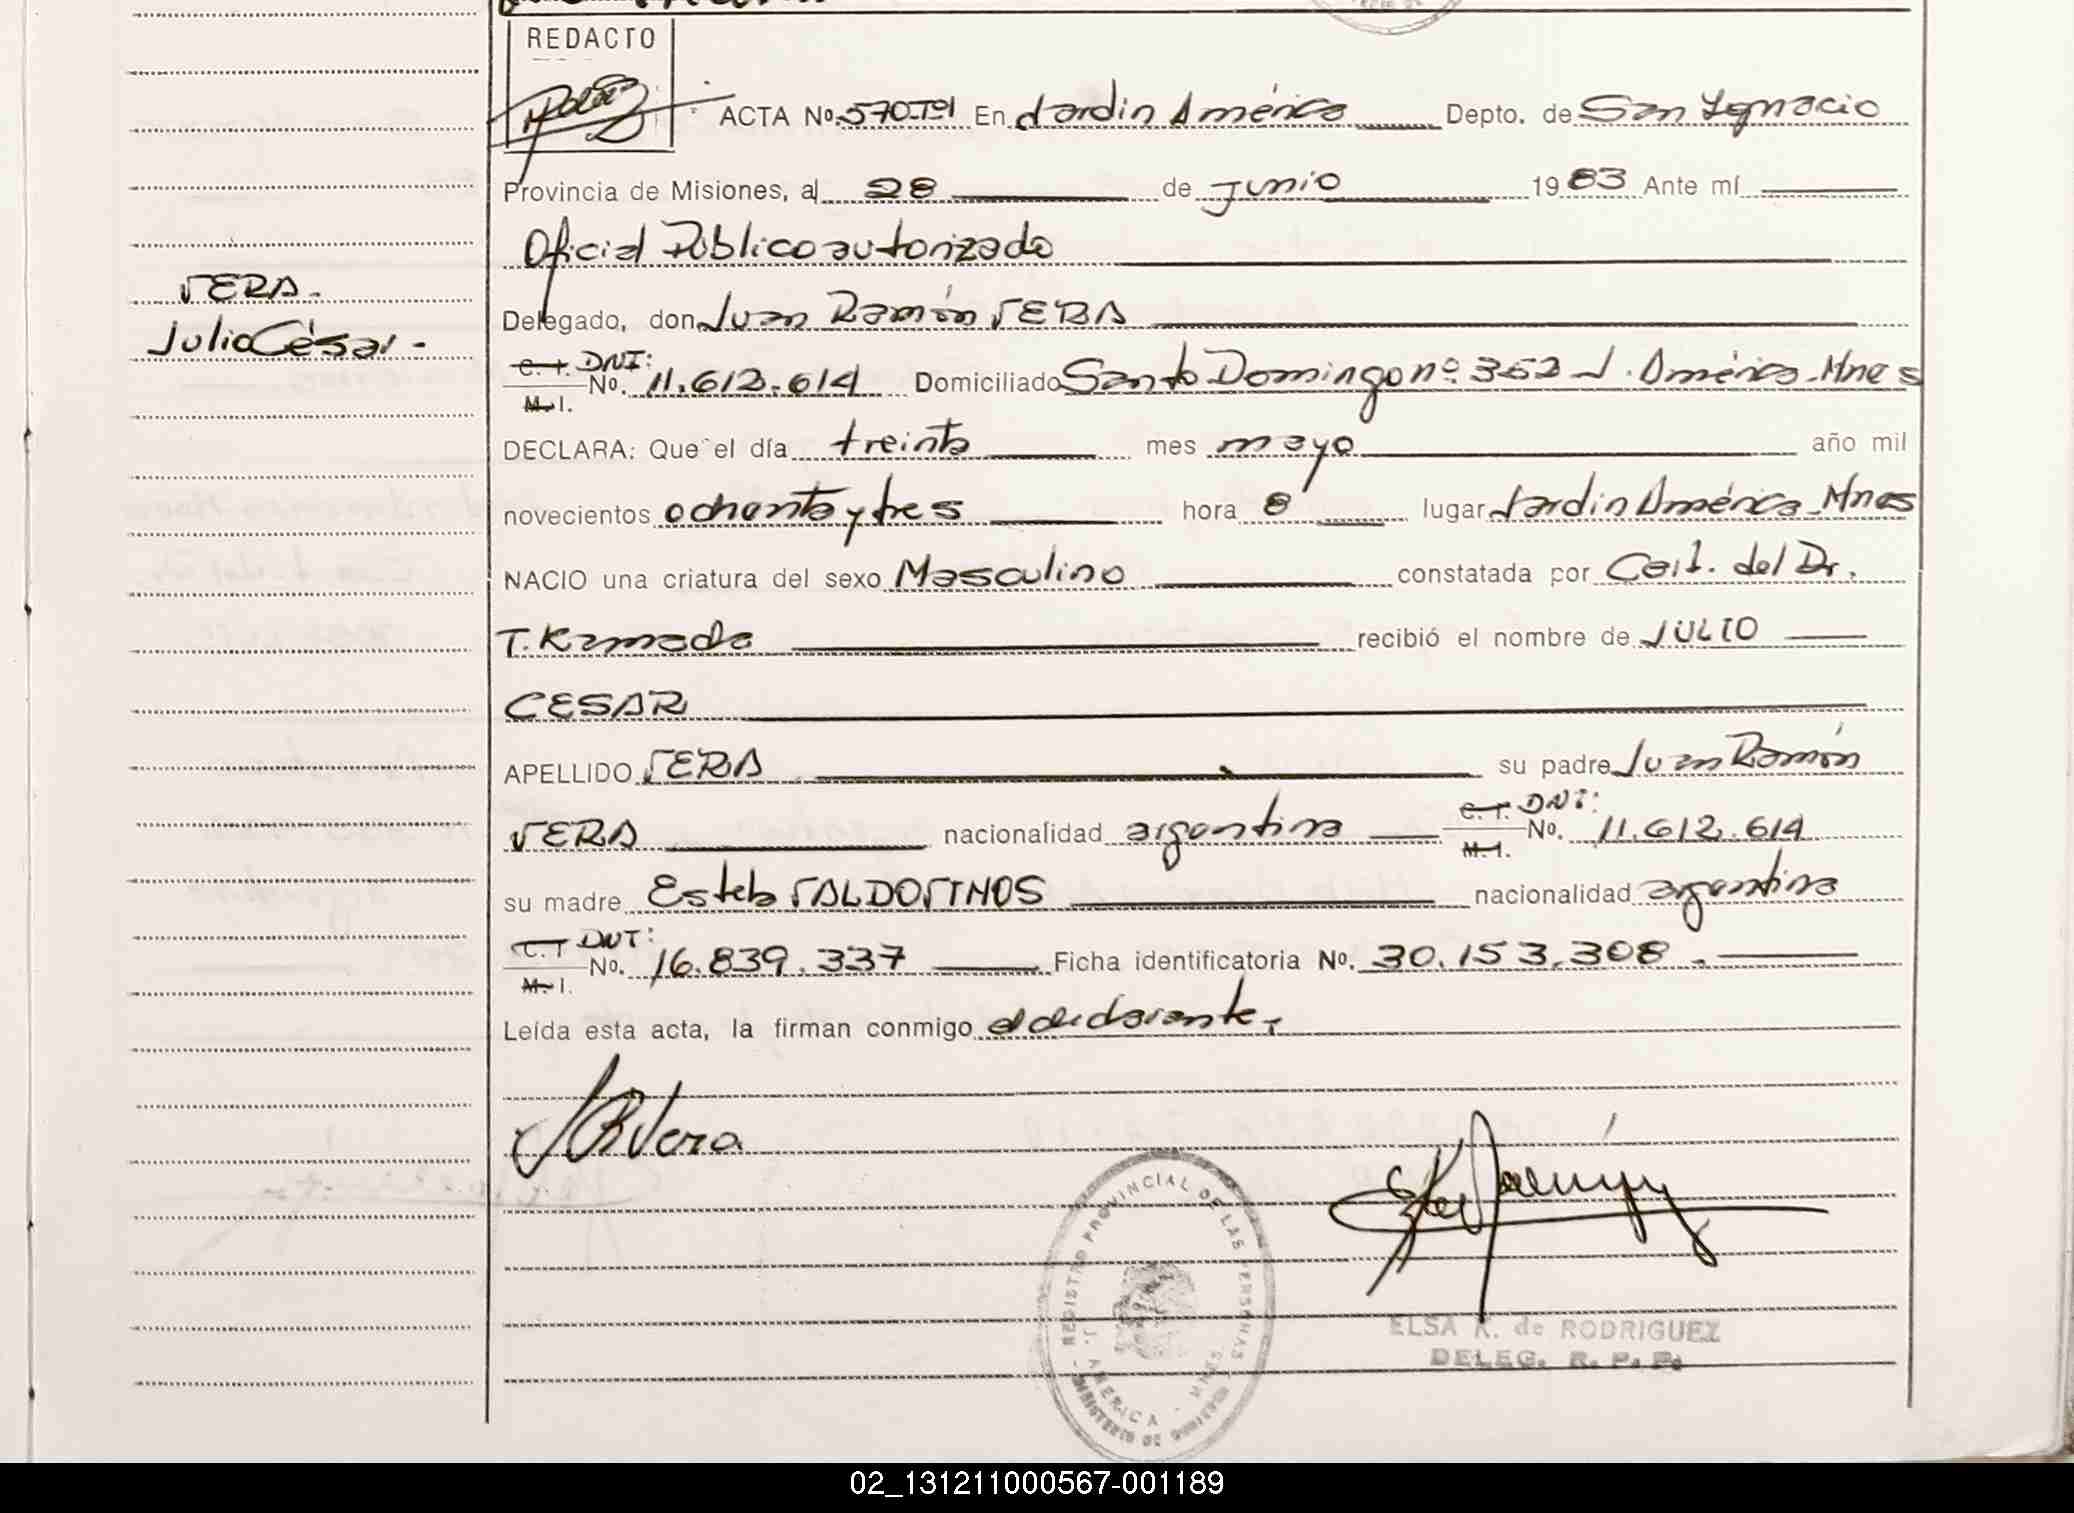 REDACTO
ACTA No. 570 Tº1 En Jardín América Depto. de San Ignacio
Provincia de Misiones, al 28 de junio 1983 Ante mí
Oficial Público autorizado
VERA.
Julio César.-
Delegado, don Juan Ramón VERA
C. I. DNI:
M. I. No. 11.612.614 Domiciliado Santo Domingo nº 352 J. América. Mnes
DECLARA: Que el día treinta mes mayo año mil
novecientos ochenta y tres hora 8 lugar Jardín América. Mnes
NACIO una criatura del sexo Masculino constatada por Cert. del Dr.
T. Kamada recibió el nombre de JULIO
CESAR
APELLIDO VERA su padre Juan Ramón
VERA nacionalidad argentina C. I. DNI: M. I. No. 11.612.614
su madre Estela VALDOVINOS nacionalidad argentina
C. I DNI:
M. I. No. 16.839.337 Ficha identificatoria No. 30.153.308.
Leída esta acta, la firman conmigo el declarante.
JRVera
REGISTRO PROVINCIAL DE LAS PERSONAS
J. AMERICA - MNES.
MINISTERIO DE GOBIERNO
ELSA K. de RODRIGUEZ
DELEG. R. P. P.
02_131211000567-001189